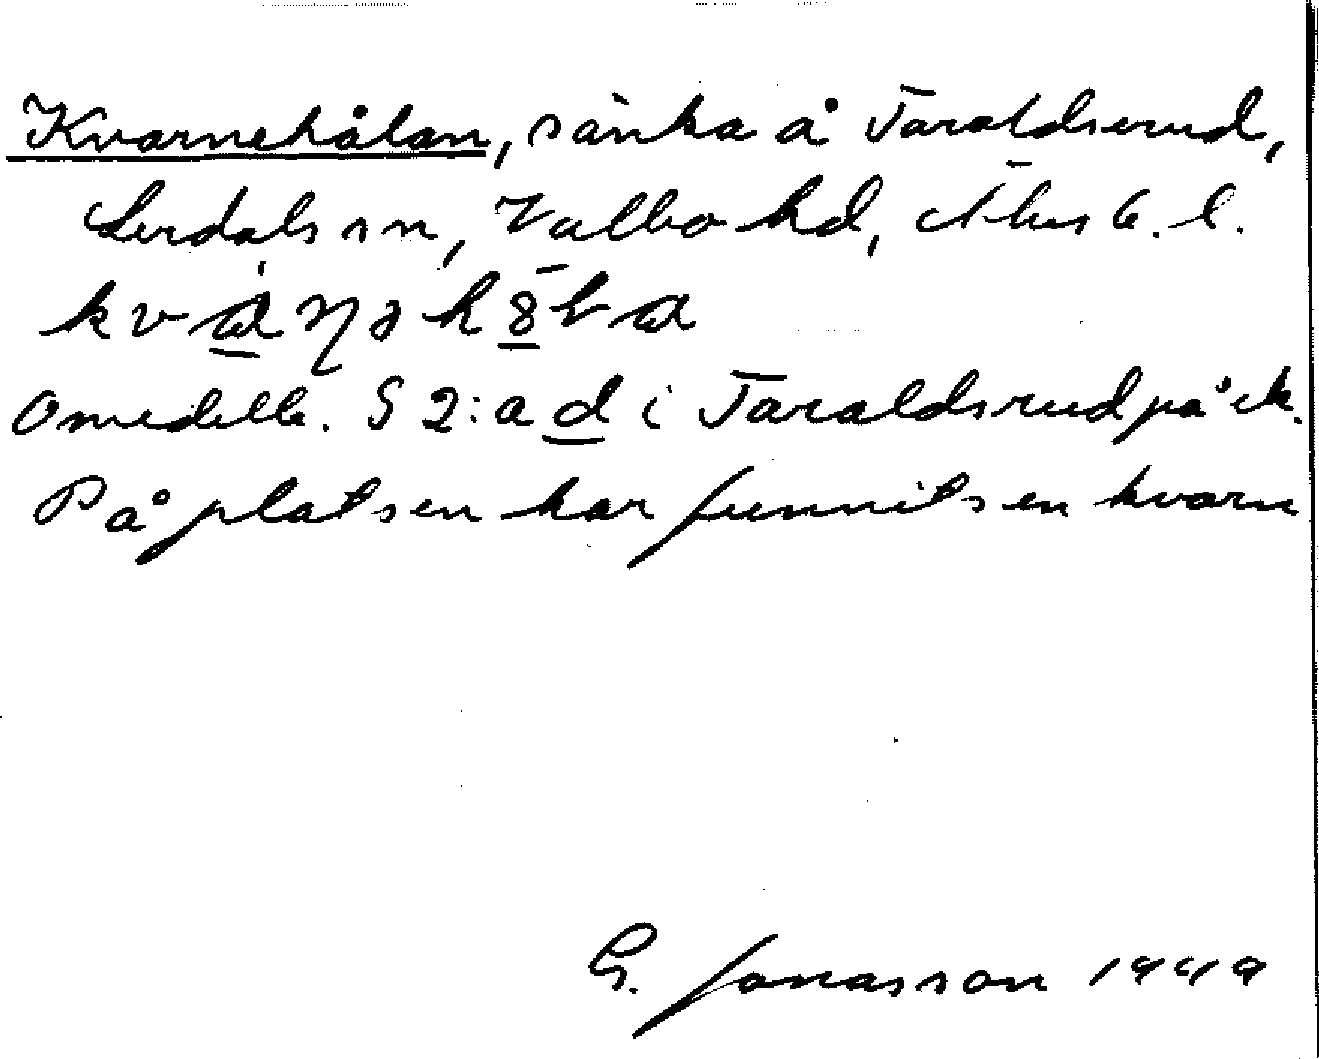 Kvarnehålan, sänka å Taraldserud,
Lerdals sn, Valbo hd, Älvsb. l.
Omedelb. S 2: a d i Taraldsrud på ek.
På platsen har funnits en kvarn
G. Jonasson 1949